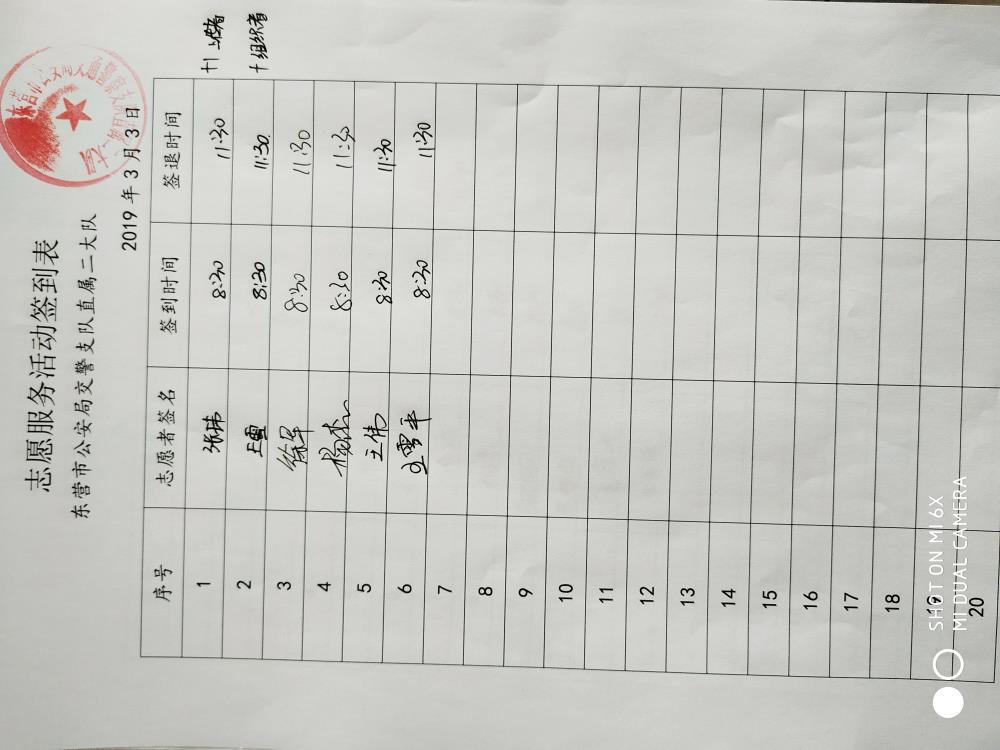 志愿服务活动签到表
东营市公安局交警支队直属二大队
2019 年 3 月 3 日
序号 志愿者签名 签到时间 签退时间
1 张伟 8:30 11:30
2 8:30 11:30
3 徐军 8:30 11:30
4 8:30 11:30
5 王伟 8:30 11:30
6 王雪平 8:30 11:30
7
8
9
10
11
12
13
14
15
16
17
18
19
20
十组织者
SHOT ON MI 6X
MI DUAL CAMERA